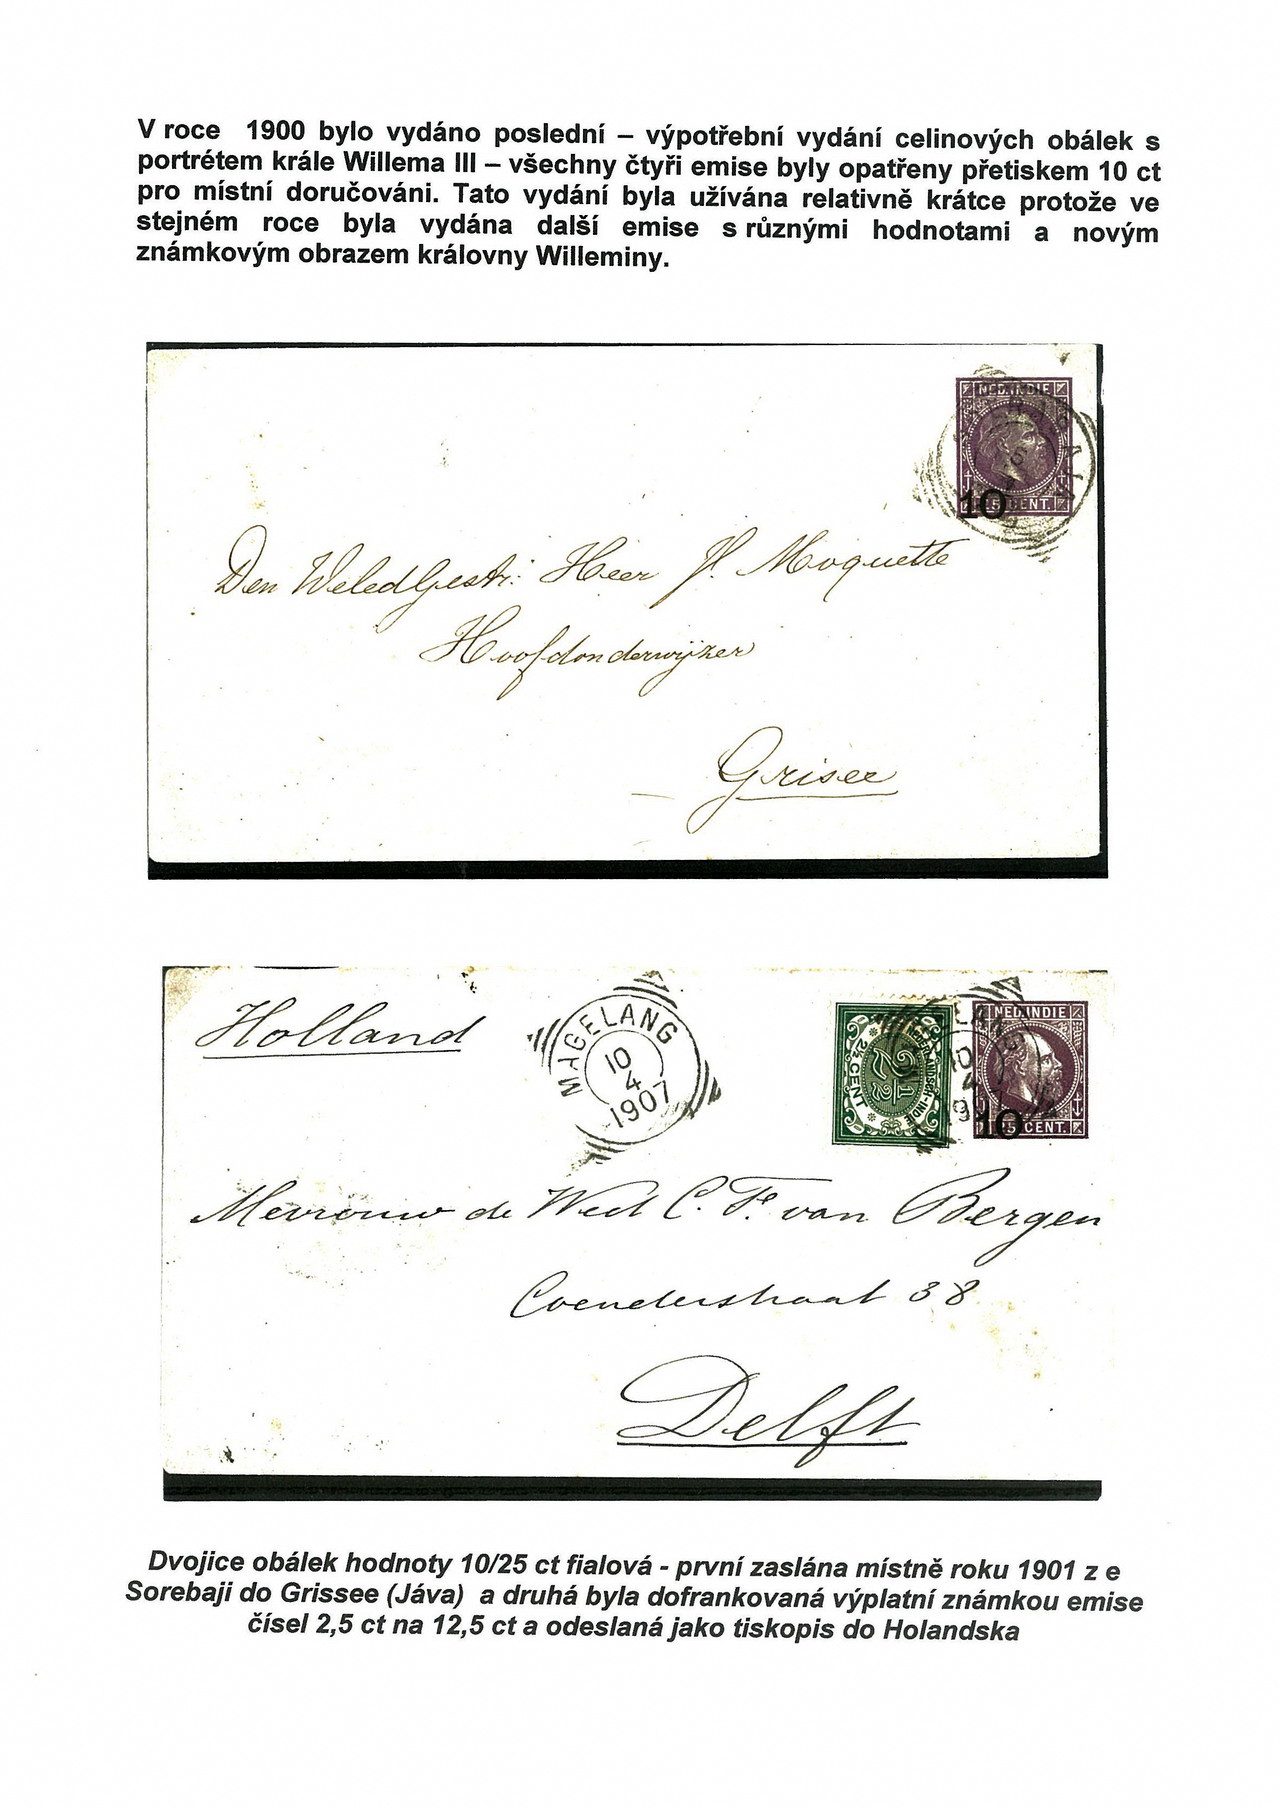 V roce 1900 bylo vydáno poslední – výpotřební vydání celinových obálek s
portrétem krále Willema III – všechny čtyři emise byly opatřeny přetiskem 10 ct
pro místní doručováni. Tato vydání byla užívána relativně krátce protože ve
stejném roce byla vydána další emise s různými hodnotami a novým
známkovým obrazem královny Willeminy.
NED.INDIE
10
25 CENT.
Den WelEdGestr: Heer J. Moquette
Hoofdonderwijzer
Grisee
Holland
MAGELANG
10
4
1907
2½ CENT
NEDERLANDSCH-INDIE
NED.INDIE
10
25 CENT.
Mevrouw de Wed C. F. van Bergen
Coenderstraat 38
Delft
Dvojice obálek hodnoty 10/25 ct fialová - první zaslána místně roku 1901 z e
Sorebaji do Grissee (Jáva) a druhá byla dofrankovaná výplatní známkou emise
čísel 2,5 ct na 12,5 ct a odeslaná jako tiskopis do Holandska